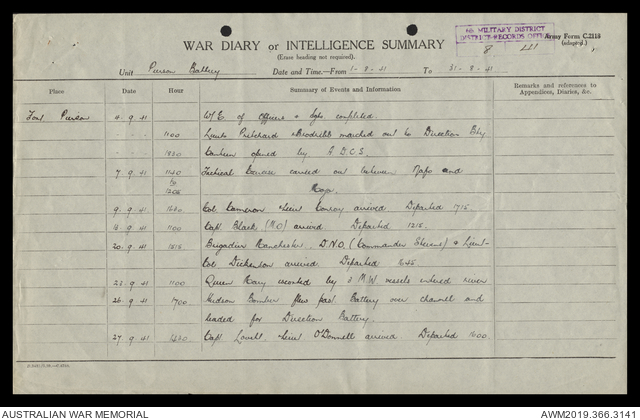 6th MILITARY DISTRICT
DISTRICT RECORDS OFFICE
Army Form C.2118
(adapted.)
WAR DIARY or INTELLIGENCE SUMMARY
(Erase heading not required).
Unit Pierson Battery Date and Time—From 1-8-41 To 31-8-41
Place Date Hour Summary of Events and Information Remarks and references to Appendices, Diaries, &c.
Fort Pierson 4.9.41 W.E. of Officers & completed.
1100 Lieuts Pritchard & Brodribb marched out to Direction Bty
1930 Canteen opened by A.D.C.S.
7.9.41 1140 Tactical Exercise carried out between and
to
1205
9.9.41 1640 Col. Cameron & Lieut Conroy arrived Departed 1715.
1100 Capt Black (M.O) arrived. Departed 1215.
20.9.41 1515 Brigadier Manchester, D.N.O. (Commander Stevens) & Lieut-
Col Dickenson arrived. Departed 1645
1100 Queen Mary escorted by 3 M.W. vessels entered river
26.9.41 1700 Hudson Bomber flew past Battery over channel and
headed for Direction Battery.
27.9.41 1430 Capt Lovett & Lieut O'Donnell arrived Departed 1600.
AUSTRALIAN WAR MEMORIAL
AWM2019.366.3141